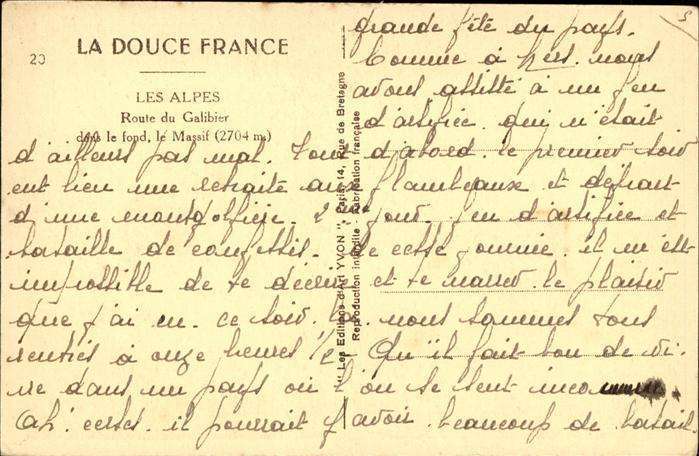 20
LA DOUCE FRANCE
LES ALPES
Route du Galibier
dans le fond, le Massif (2704 m.)
"Les Editions d'Art YVON" Paris, 14, Rue de Bretagne
Reproduction interdite Fabrication française
5
grande fête du pays.
Comme à nous
avons assisté à un feu
d'artifice qui n'était
d'ailleurs pas mal. Tout d'abord. le premier soir
eut lieu une retraite aux flambeaux et départ
d'une mongolfière. 2 jour feu d'artifice et
bataille de confettis. De cette journée il m'est
impossible de te décrire et te narrer le plaisir
que j'ai eu. ce soir. nous sommes tous
rentrés à onze heures 1/2 Qu'il fait bon de vi-
vre dans un pays où l'on se sent
Ah! certes il pourrait y avoir beaucoup de batail.